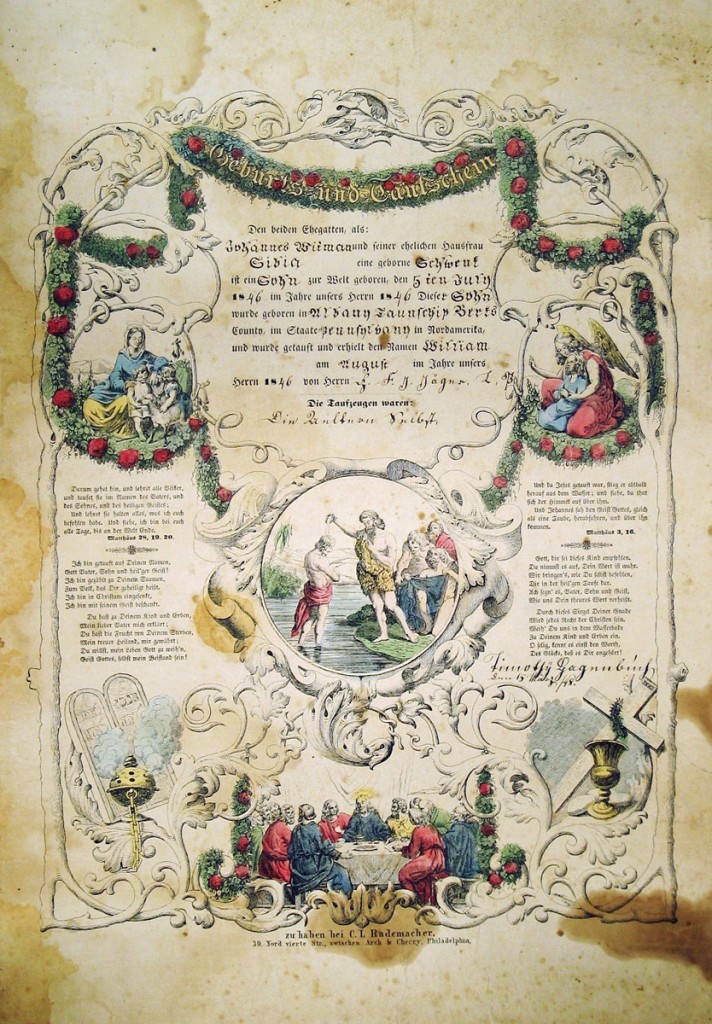 Geburts- und Taufschein
Den beiden Ehegatten, als:
Johannes Wiiman und seiner ehelichen Hausfrau
eine geborne Schwenk
ist ein Sohn zur Welt geboren, den 5ten July
1846 im Jahre unsers Herrn 1846 Dieser Sohn
wurde geboren in Albany Taunschip Berks
County, im Staate Pennsylvany in Nordamerika,
und wurde getauft und erhielt den Namen William
am August im Jahre unsers
Herrn 1846 von Herrn F. J. Jäger
Die Taufzeugen waren:
Die Aeltern Selbst
Darum gehet hin, und lehret alle Völker,
und taufet sie im Namen des Vaters, und
des Sohnes, und des heiligen Geistes;
Und lehret sie halten alles, was ich euch
befohlen habe. Und siehe, ich bin bei euch
alle Tage, bis an der Welt Ende.
Matthäus 28, 19. 20.
Ich bin getauft auf Deinen Namen,
Gott Vater, Sohn und heil'ger Geist!
Ich bin gezählt zu Deinem Saamen,
Zum Volk, das Dir geheiligt heißt.
Ich bin in Christum eingesenkt,
Ich bin mit seinem Geist beschenkt.
Du hast zu Deinem Kind und Erben,
Mein lieber Vater mich erklärt;
Du hast die Frucht von Deinem Sterben,
Mein treuer Heiland, mir gewährt;
Du willst, mein Leben Gott zu weih'n,
Geist Gottes, selbst mein Beistand sein!
Und da Jesus getauft war, stieg er alsbald
herauf aus dem Wasser; und siehe, da that
sich der Himmel auf über ihm.
Und Johannes sah den Geist Gottes, gleich
als eine Taube, herabfahren, und über ihn
kommen.
Matthäus 3, 16.
Gott, dir sei dieses Kind empfohlen,
Du nimmst es auf, Dein Wort ist wahr.
Wir bringen's, wie Du selbst befohlen,
Dir in der heil'gen Taufe dar.
Ach segn' es, Vater, Sohn und Geist,
Wie uns Dein theures Wort verheißt.
Durch dieses Siegel Deiner Gnade
Wird jedes Recht der Christen sein.
Weih' Du uns in dem Wasserbade
Zu Deinem Kind und Erben ein.
O selig, kennt es einst den Werth,
Das Glück, daß es Dir angehört!
Timothy Hagenbuch
zu haben bei C. L. Rademacher,
39. Nord vierte Str., zwischen Arch & Cherry, Philadelphia,